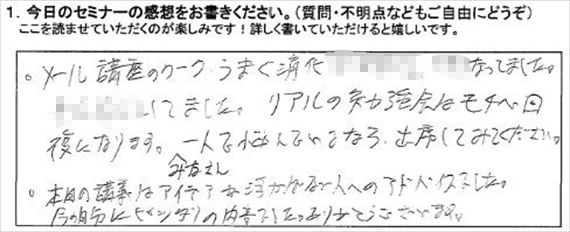 1. 今日のセミナーの感想をお書きください。（質問・不明点などもご自由にどうぞ）
ここを読ませていただくのが楽しみです！詳しく書いていただけると嬉しいです。
。メール講座のワーク うまく消化 なってました。
してました。リアルの勉強会はモチベ回
復になります。一人で悩んでいるなら、出席してみてください。
みなさん
。本日の講義はアイデアが浮かばない人へのアドバイスでした。
今の自分にピンポイントの内容でした。ありがとうございます。